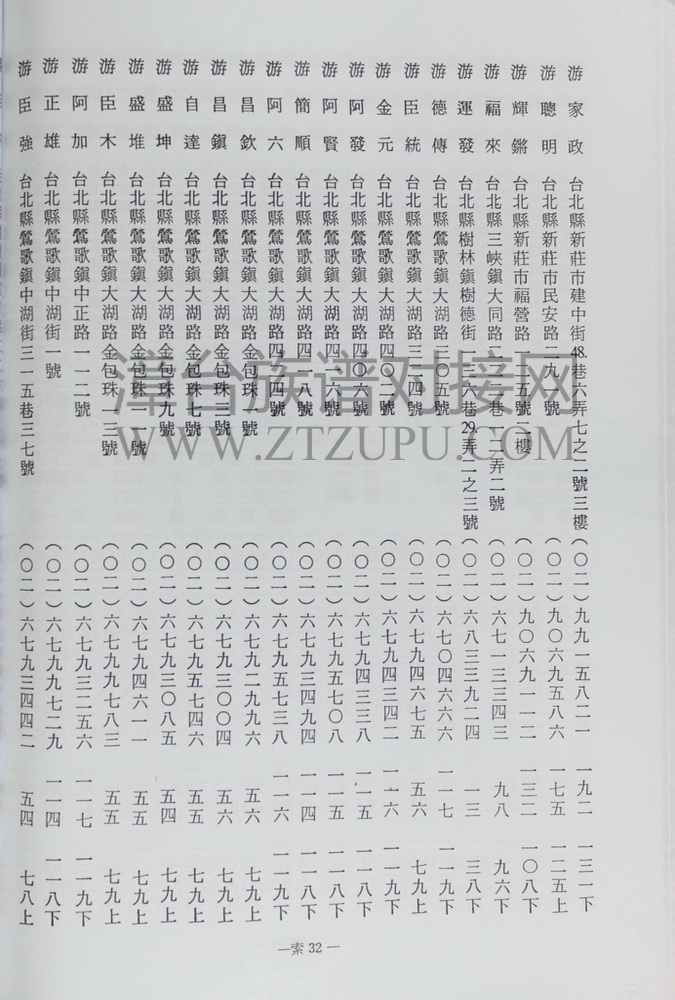 游家政 台北縣新莊市建中街48.巷六弄七之二號三樓 (〇二)九九一五八二一 一九二 一三一下
游聰明 台北縣新莊市民安路二九號 (〇二)九〇六九五八六 一七五 一二五上
游輝鏘 台北縣新莊市福營路 五號二樓 (〇二)九〇六九一一二 一三二 一〇八下
游福來 台北縣三峽鎮大同路 巷一二弄二號 (〇二)六七一三三四三 九八 九六下
游運發 台北縣樹林鎮樹德街一三六巷29.弄二之三號 (〇二)六八三三九二四 一三 三八下
游德傳 台北縣鶯歌鎮大湖路 〇五號 (〇二)六七〇四六六四 一一七 一一九下
游臣統 台北縣鶯歌鎮大湖路三 四號 (〇二)六七九四六七五 五六 七九上
游金元 台北縣鶯歌鎮大湖路四〇二號 (〇二)六七九四三四二 一一六 一一九下
游阿發 台北縣鶯歌鎮大湖路四〇六號 (〇二)六七九四三三八 一一五 一一八下
游阿賢 台北縣鶯歌鎮大湖路四 六號 (〇二)六七九五七〇八 一一五 一一八下
游簡順 台北縣鶯歌鎮大湖路四 八號 (〇二)六七九三四九四 一一四 一一八下
游阿六 台北縣鶯歌鎮大湖路四 四號 (〇二)六七九五七三八 一一六 一一九下
游昌欽 台北縣鶯歌鎮大湖路金包珠 號 (〇二)六七〇二九九六 五六 七九上
游昌鎮 台北縣鶯歌鎮大湖路金包珠三號 (〇二)六七九三〇〇四 五六 七九上
游自達 台北縣鶯歌鎮大湖路金包珠七號 (〇二)六七九五七四六 五五 七九上
游盛坤 台北縣鶯歌鎮大湖路金包珠九號 (〇二)六七九三〇八五 五四 七九上
游盛堆 台北縣鶯歌鎮大湖路金包珠一一號 (〇二)六七九四六一一 五五 七九上
游臣木 台北縣鶯歌鎮大湖路金包珠一三號 (〇二)六七九九七八三 五五 七九上
游阿加 台北縣鶯歌鎮中正路一一二號 (〇二)六七九三二五六 一一七 一一九下
游正雄 台北縣鶯歌鎮中湖街一號 (〇二)六七九九七二九 一一四 一一八下
游臣強 台北縣鶯歌鎮中湖街三一五巷三七號 (〇二)六七九三四四二 五四 七八上
—索 32—
漳台族谱对接网
WWW.ZTZUPU.COM